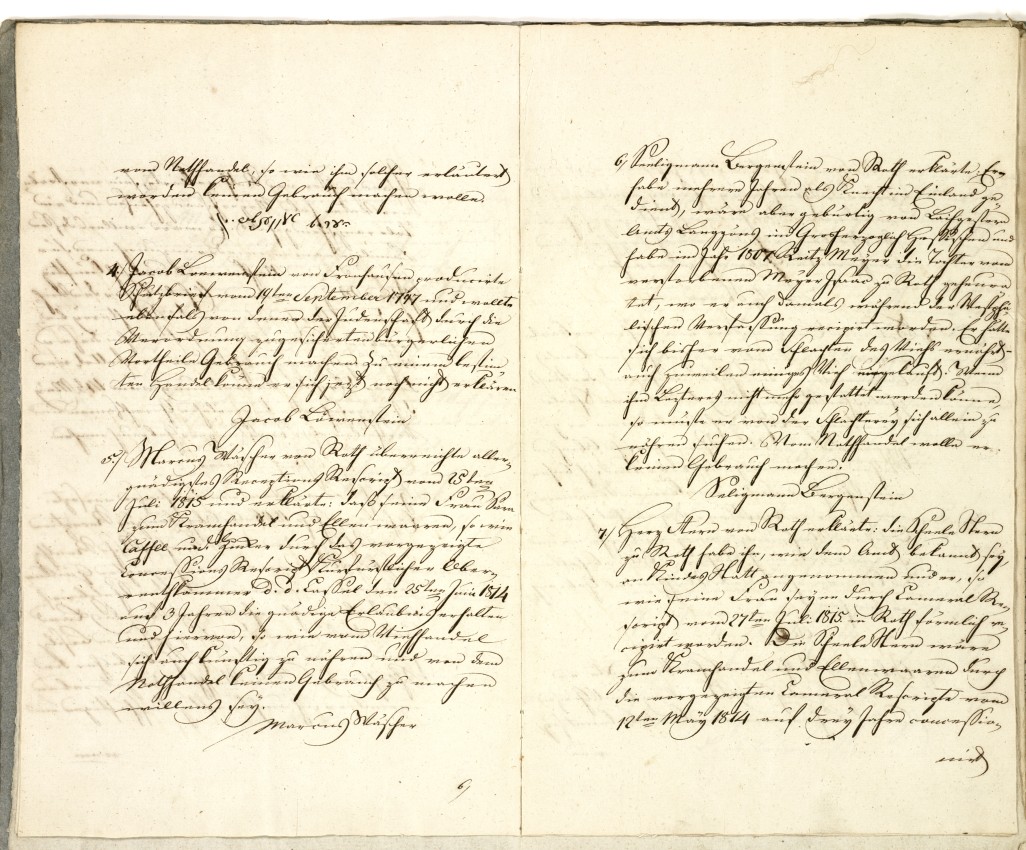 vom Nothhandel, so wie ihm solcher erläutert
worden keinen Gebrauch machen wolle.
4./ Jacob Loewenstein von Fronhausen producirte
Schutzbrief vom 19ten September 1797 und wollte
ebenfals von denen der Judenschaft durch die
Verordnung zugesicherten bürgerlichen
Vortheile Gebrauch machen. Zu einem bestim
ten Handel könne er sich jezt noch nicht erklären
Jacob Löwenstein
5./ Marcus Wäscher von Roth überreichte aller-
gnädigstes Receptions Rescript vom 25ten
Juli 1815 und erklärte: daß seine Frau Sara
zum Kramhandel und Ellenwaaren, so wie
Caffee und Zucker durch das vorgezeigte
Concessions Rescript Kurfürstlicher Ober-
rentkammer d. d. Cassel den 25ten Juni 1814
auf 3 Jahren die gnädige Erlaubnis erhalten
und hiervon, so wie vom Viehhandel
sich auch künftig zu nähren und von dem
Nothhandel keinen Gebrauch zu machen
willens sey.
Marcus Wäscher
6/
6/ Seeligmann Bergenstein von Roth erklärte, Er
habe mehrere Jahren als Knecht im Einland ge
dient, wäre aber gebürtig von Leihgestern
Amts Langgöns im Grosherzoglich Hessischen und
habe im Jahr 1807 Reitz Meyer die Tochter vom
verstorbenen Meyer Isaac zu Roth geheura
tet, wo er auch damals während der Westphä
lischen Verfassung recipirt worden. Er hätte
sich bisher vom Schlachten des Viehs ernährt-
auch zuweilen einiges Vieh verkauft. Wenn
ihm Lezteres nicht mehr gestattet werden könne,
so müste er von der Schlachterey sich allein zu
nähren suchen. Vom Nothhandel wolle er
keinen Gebrauch machen.
Seligmann Bergenstein
7/ Herz Stern von Roth erklärte: die Scheele Stern
zu Roth habe ihn, wie dem Amt bekannt sey
an Kindes Statt angenommen und er, so
wie seine Frau seyen durch Cameral Re-
script vom 27ten Juli 1815 in Roth förmlich re
cipirt worden. Die Scheele Stern wäre
zum Kramhandel und Ellenwaaren durch
die vorgezeigten Cameral Rescripte vom
12ten May 1814 auf drey Jahre concessio-
nirt